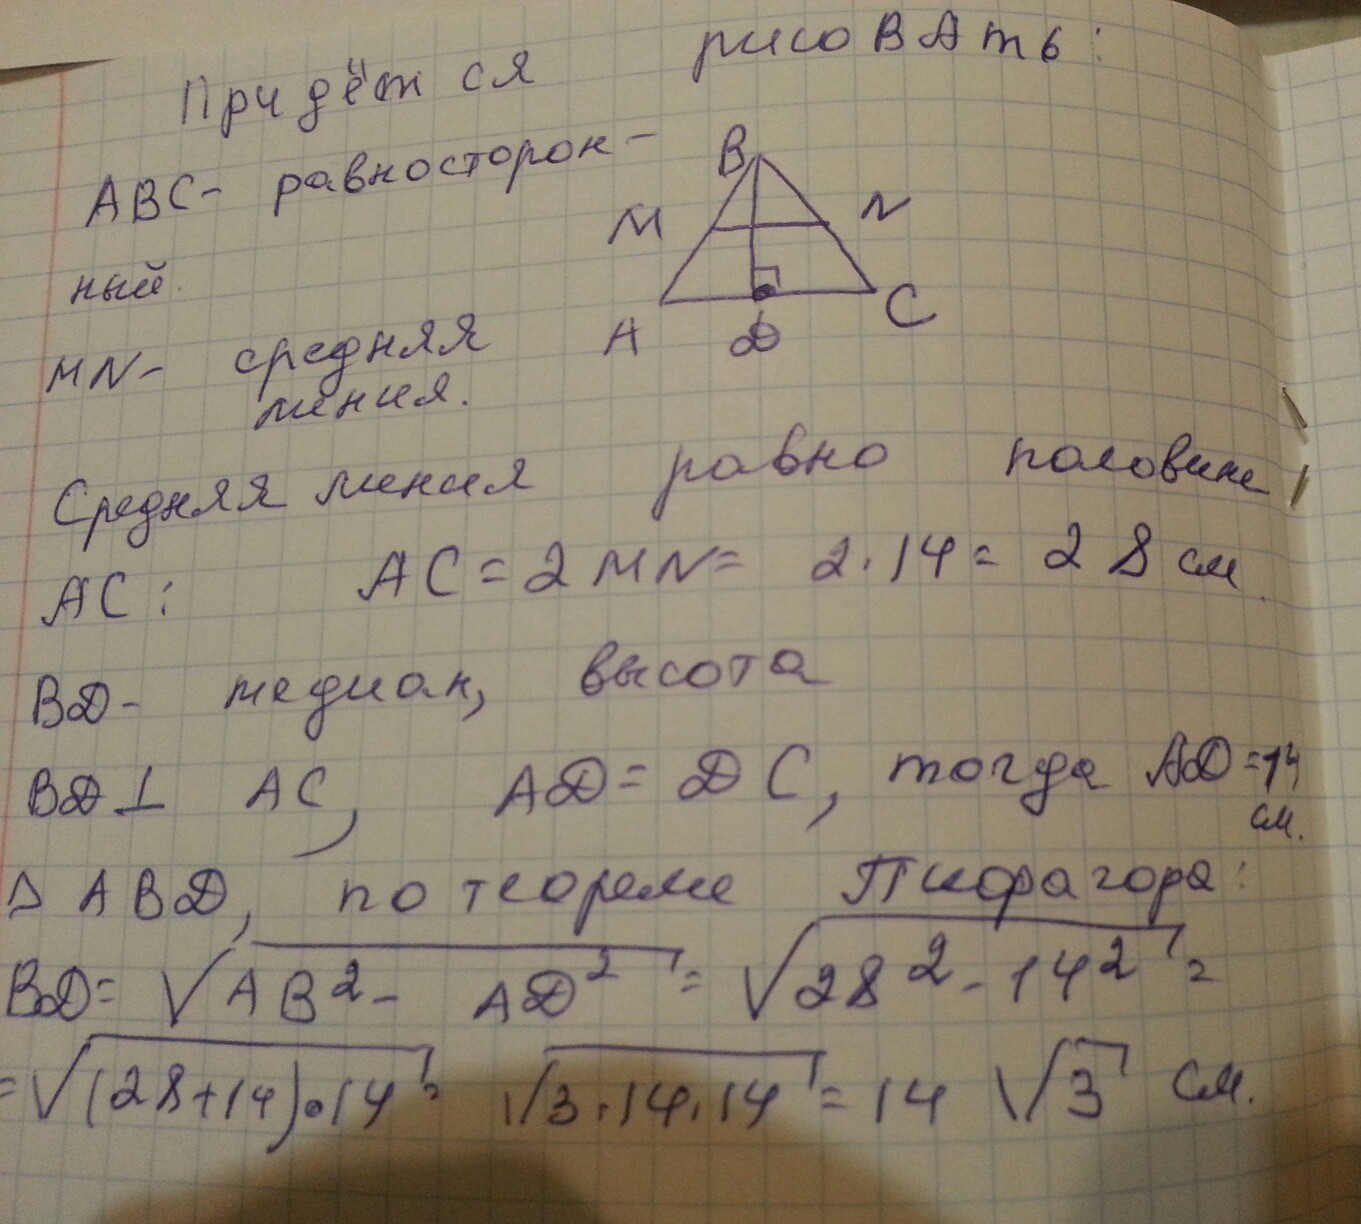 Придётся рисоВАть:
АВС- равносторон-
ный.
MN- средняя
линия.
B
M
N
A
D
C
Средняя линия равно половине
АС: АС = 2 MN = 2·14 = 28 см.
BD- медиан, высота
BD ⊥ AC, AD = DC, тогда AD = 14
см.
△ ABD, по теореме Пифрагора:
BD = √(AB² - AD²) = √(28² - 14²) =
= √((28+14)·14) = √(3·14·14) = 14 √3 см.